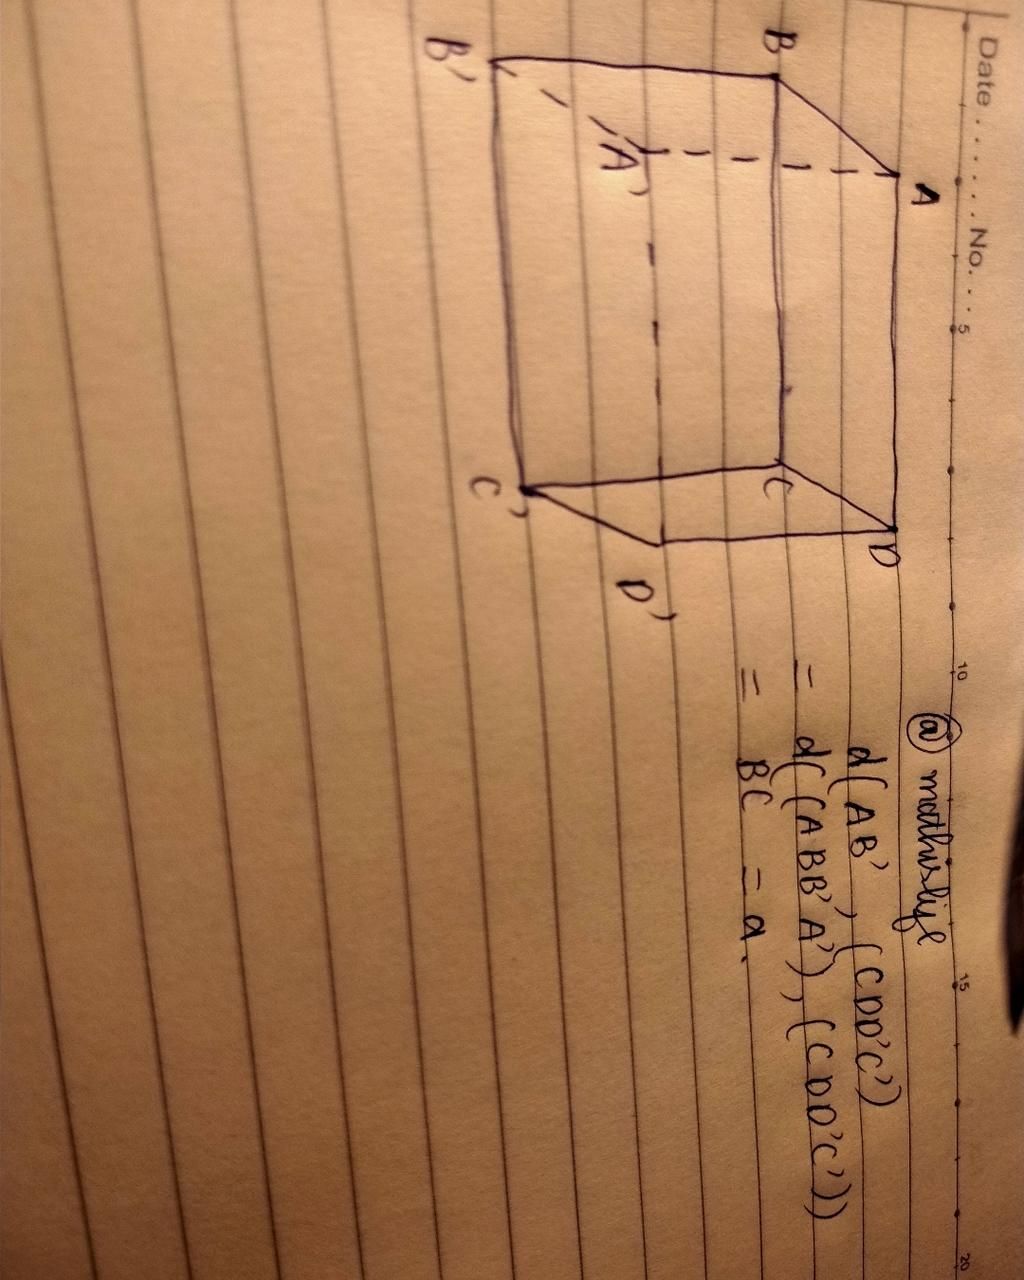 Date . . . . . . No. . . .
5 10 15 20
@ mathislife
A
B
D
C
A'
B'
D'
C'
d(AB', (CDD'C')
= d((ABB'A'), (CDD'C'))
= BC = a.